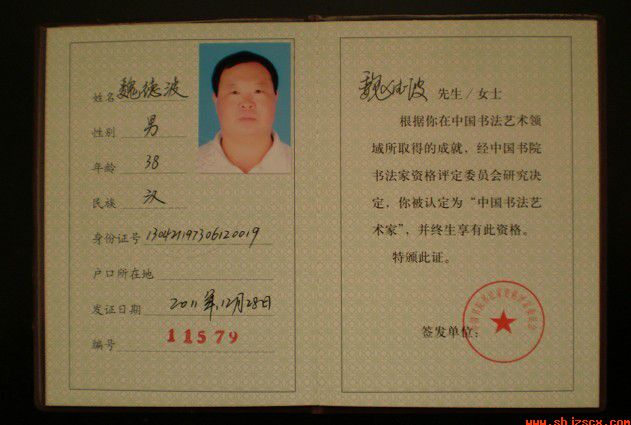 姓名 魏德波
性别 男
年龄 38
民族 汉
身份证号 130421197306120019
户口所在地
发证日期 2011年12月28日
编号 11579
魏德波 先生/女士
根据你在中国书法艺术领
域所取得的成就，经中国书院
书法家资格评定委员会研究决
定，你被认定为“中国书法艺
术家”，并终生享有此资格。
特颁此证。
签发单位：